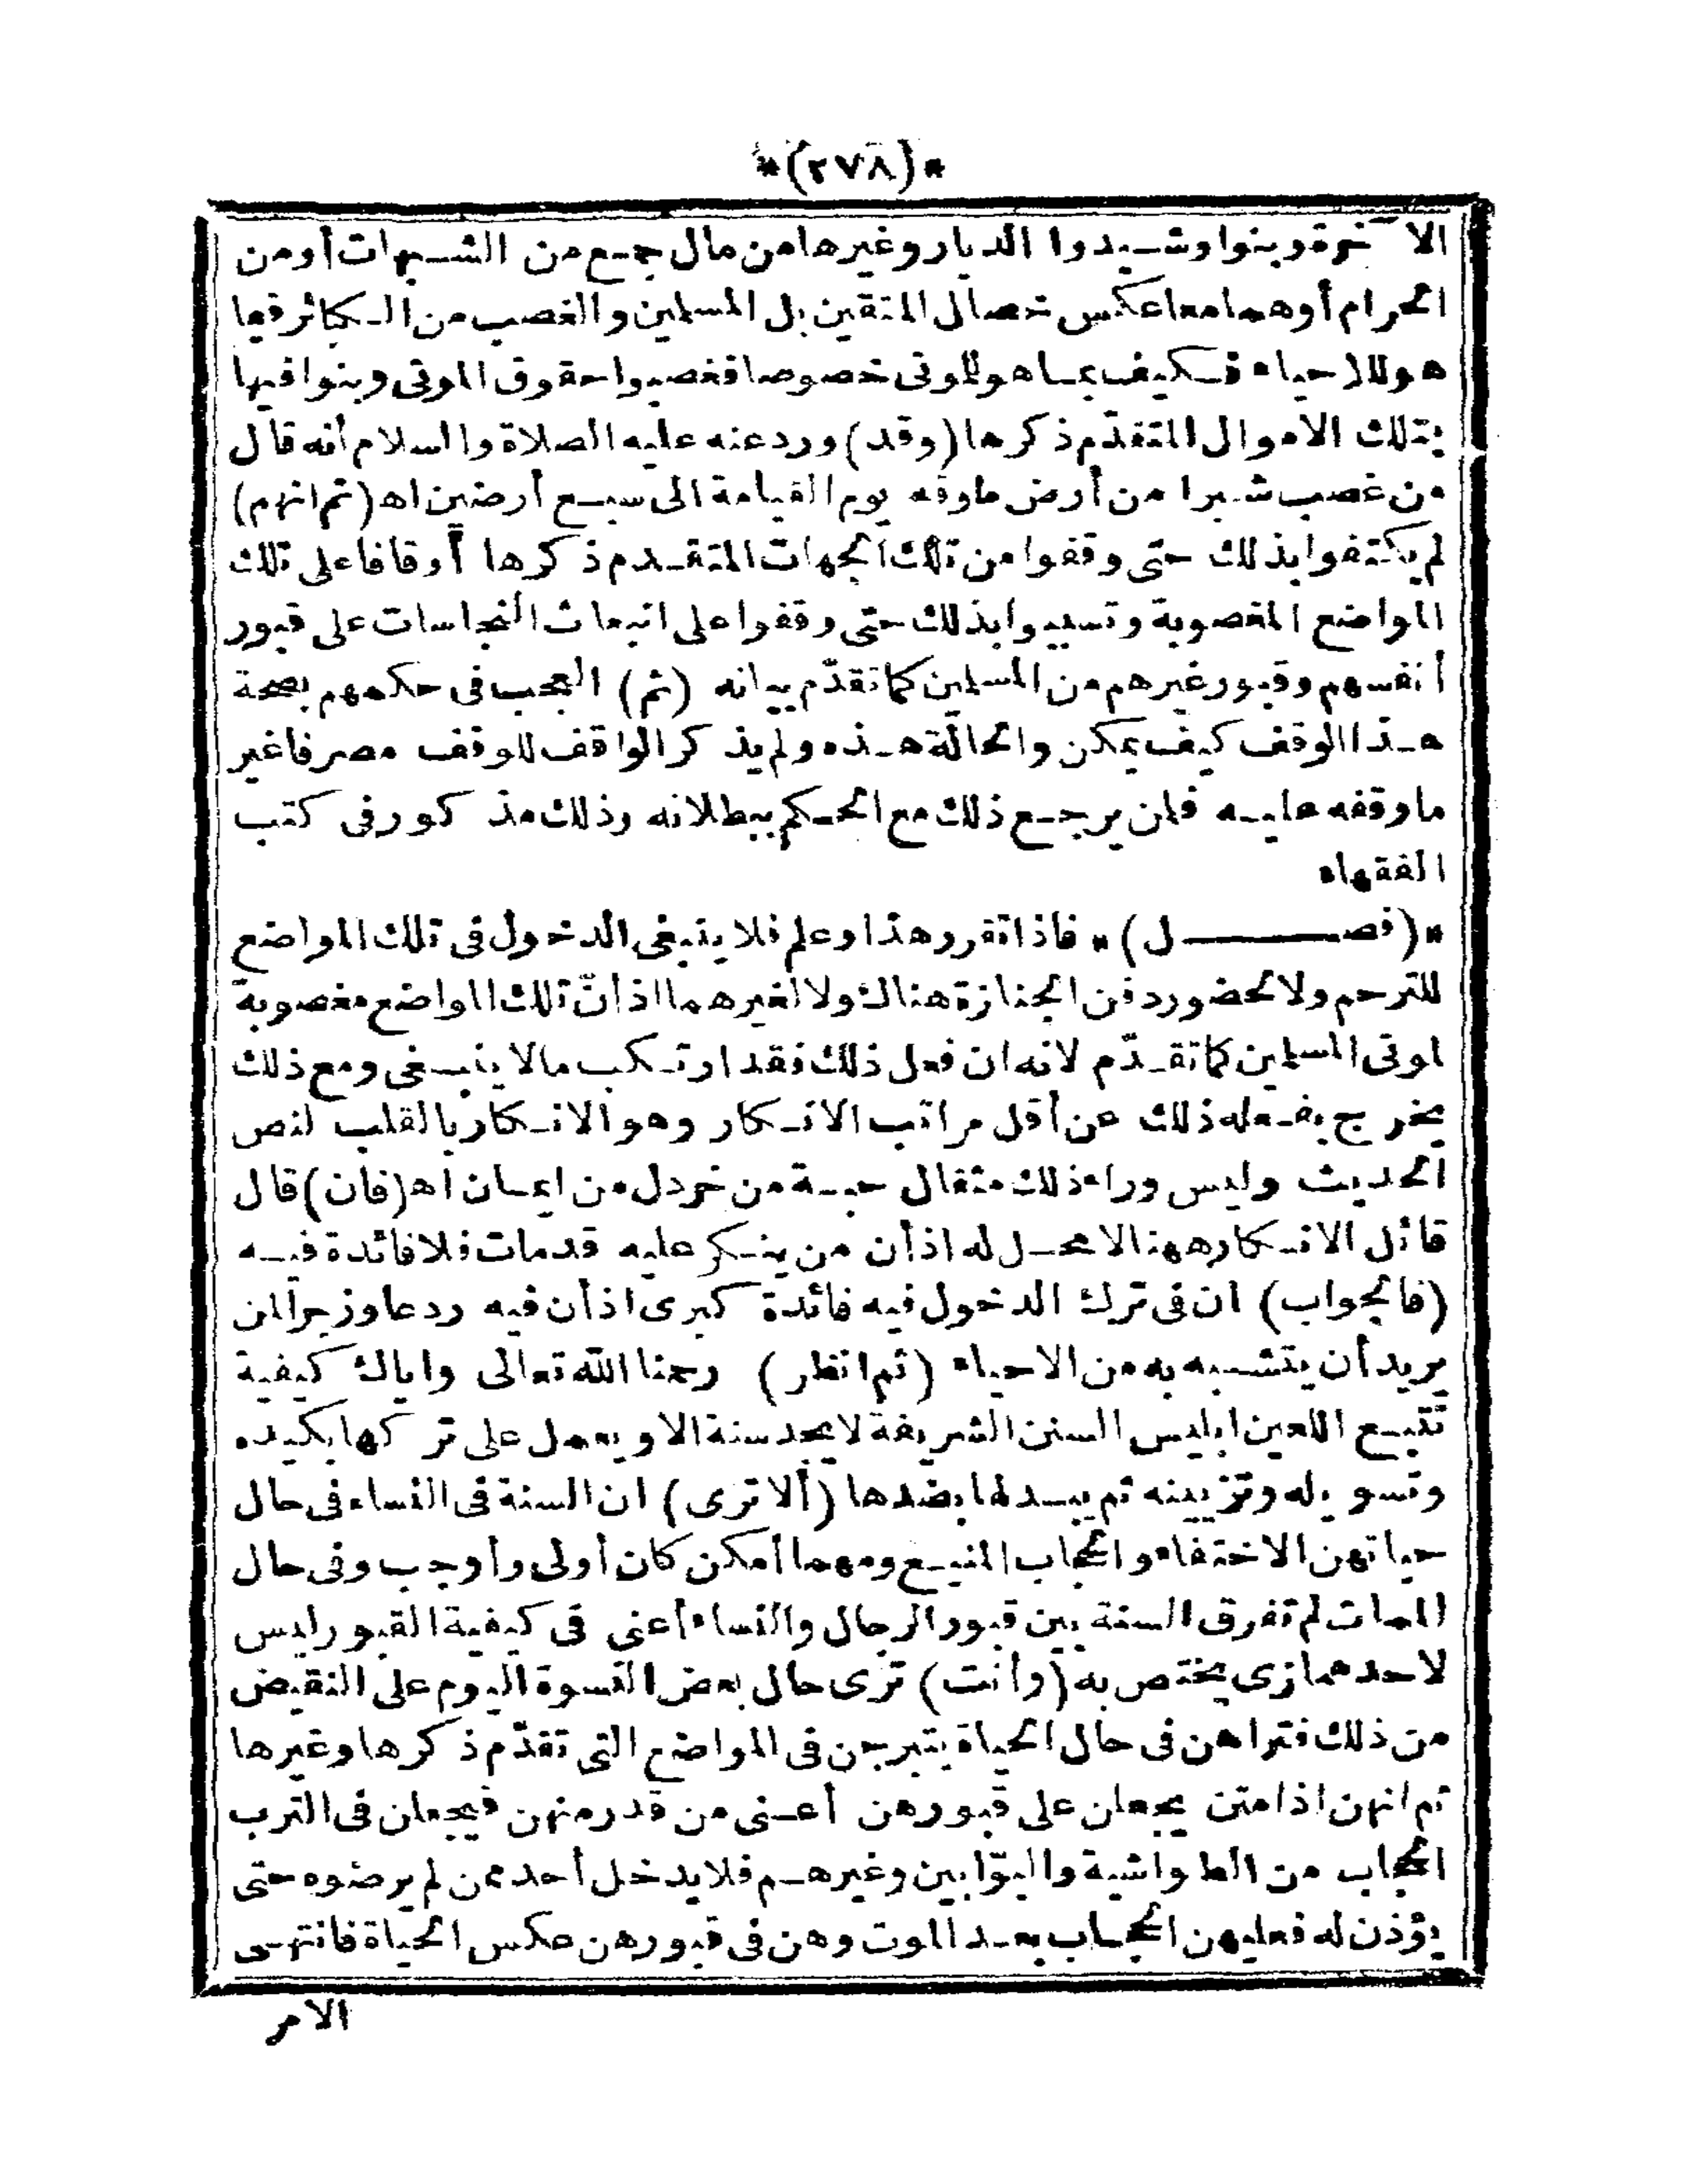 *(٢٧٨)*
الآخرة وبنوا وشيدوا الديار وغيرها من مال جمع من الشبهات أو من
الحرام أو هما معا عكس خصال المتقين بل المسلمين والغصب من الكبائر فيما
هو للاحياء فكيف بما هو للموتى خصوصا فغصبوا حقوق الموتى وبنوا فيها
بتلك الاموال المتقدّم ذكرها (وقد) ورد عنه عليه الصلاة والسلام أنه قال
من غصب شبرا من أرض طوقه يوم القيامة الى سبع أرضين اه (ثم انهم)
لم يكتفوا بذلك حتى وقفوا من تلك الجهات المتقدم ذكرها أوقافا على تلك
المواضع المغصوبة وتسببوا بذلك حتى وقفوا على انبعاث النجاسات على قبور
أنفسهم وقبور غيرهم من المسلمين كما تقدّم بيانه (ثم) العجب فى حكمهم بصحة
هذا الوقف كيف يمكن والحالة هذه ولم يذكر الواقف للوقف مصرفا غير
ما وقفه عليه فلمن يرجع ذلك مع الحكم ببطلانه وذلك مذكور فى كتب
الفقهاء
*(فصـــــل)* فاذا تقرر هذا وعلم فلا ينبغى الدخول فى تلك المواضع
للترحم ولا لحضور دفن الجنازة هناك ولا لغيرهما اذ انّ تلك المواضع مغصوبة
لموتى المسلمين كما تقدّم لانه ان فعل ذلك فقد ارتكب مالا ينبغى ومع ذلك
يخرج بفعله ذلك عن أقل مراتب الانكار وهو الانكار بالقلب لنص
الحديث وليس وراء ذلك مثقال حبة من خردل من ايمان اه (فان) قال
قائل الانكار ههنا لا محل له اذ أن من ينكر عليه قدمات فلا فائدة فيه
(فالجواب) ان فى ترك الدخول فيه فائدة كبرى اذ أن فيه ردعا وزجرا لمن
يريد أن يتشبه به من الاحياء (ثم انظر) رحمنا الله تعالى واياك كيفية
تتبع اللعين ابليس السنن الشريفة لا يجد سنة الا ويعمل على تركها بكيده
وتسويله وتزيينه ثم يبدلها بضدها (ألا ترى) ان السنة فى النساء فى حال
حياتهن الاختفاء والحجاب المنيع ومهما أمكن كان أولى وأوجب وفى حال
الممات لم تفرق السنة بين قبور الرجال والنساء أعنى فى كيفية القبور ليس
لاحدهما زى يختص به (وأنت) ترى حال بعض النسوة اليوم على النقيض
من ذلك فتراهن فى حال الحياة يتبرجن فى المواضع التى تقدّم ذكرها وغيرها
ثم انهن اذا متن يجعلن على قبورهن أعنى من قدر منهن فيجعلن فى الترب
الحجاب من الطواشية والبوّابين وغيرهم فلا يدخل أحد ممن لم يرضوه حتى
يؤذن له فعليهن الحجاب بعد الموت وهن فى قبورهن عكس الحياة فانتهى
الامر